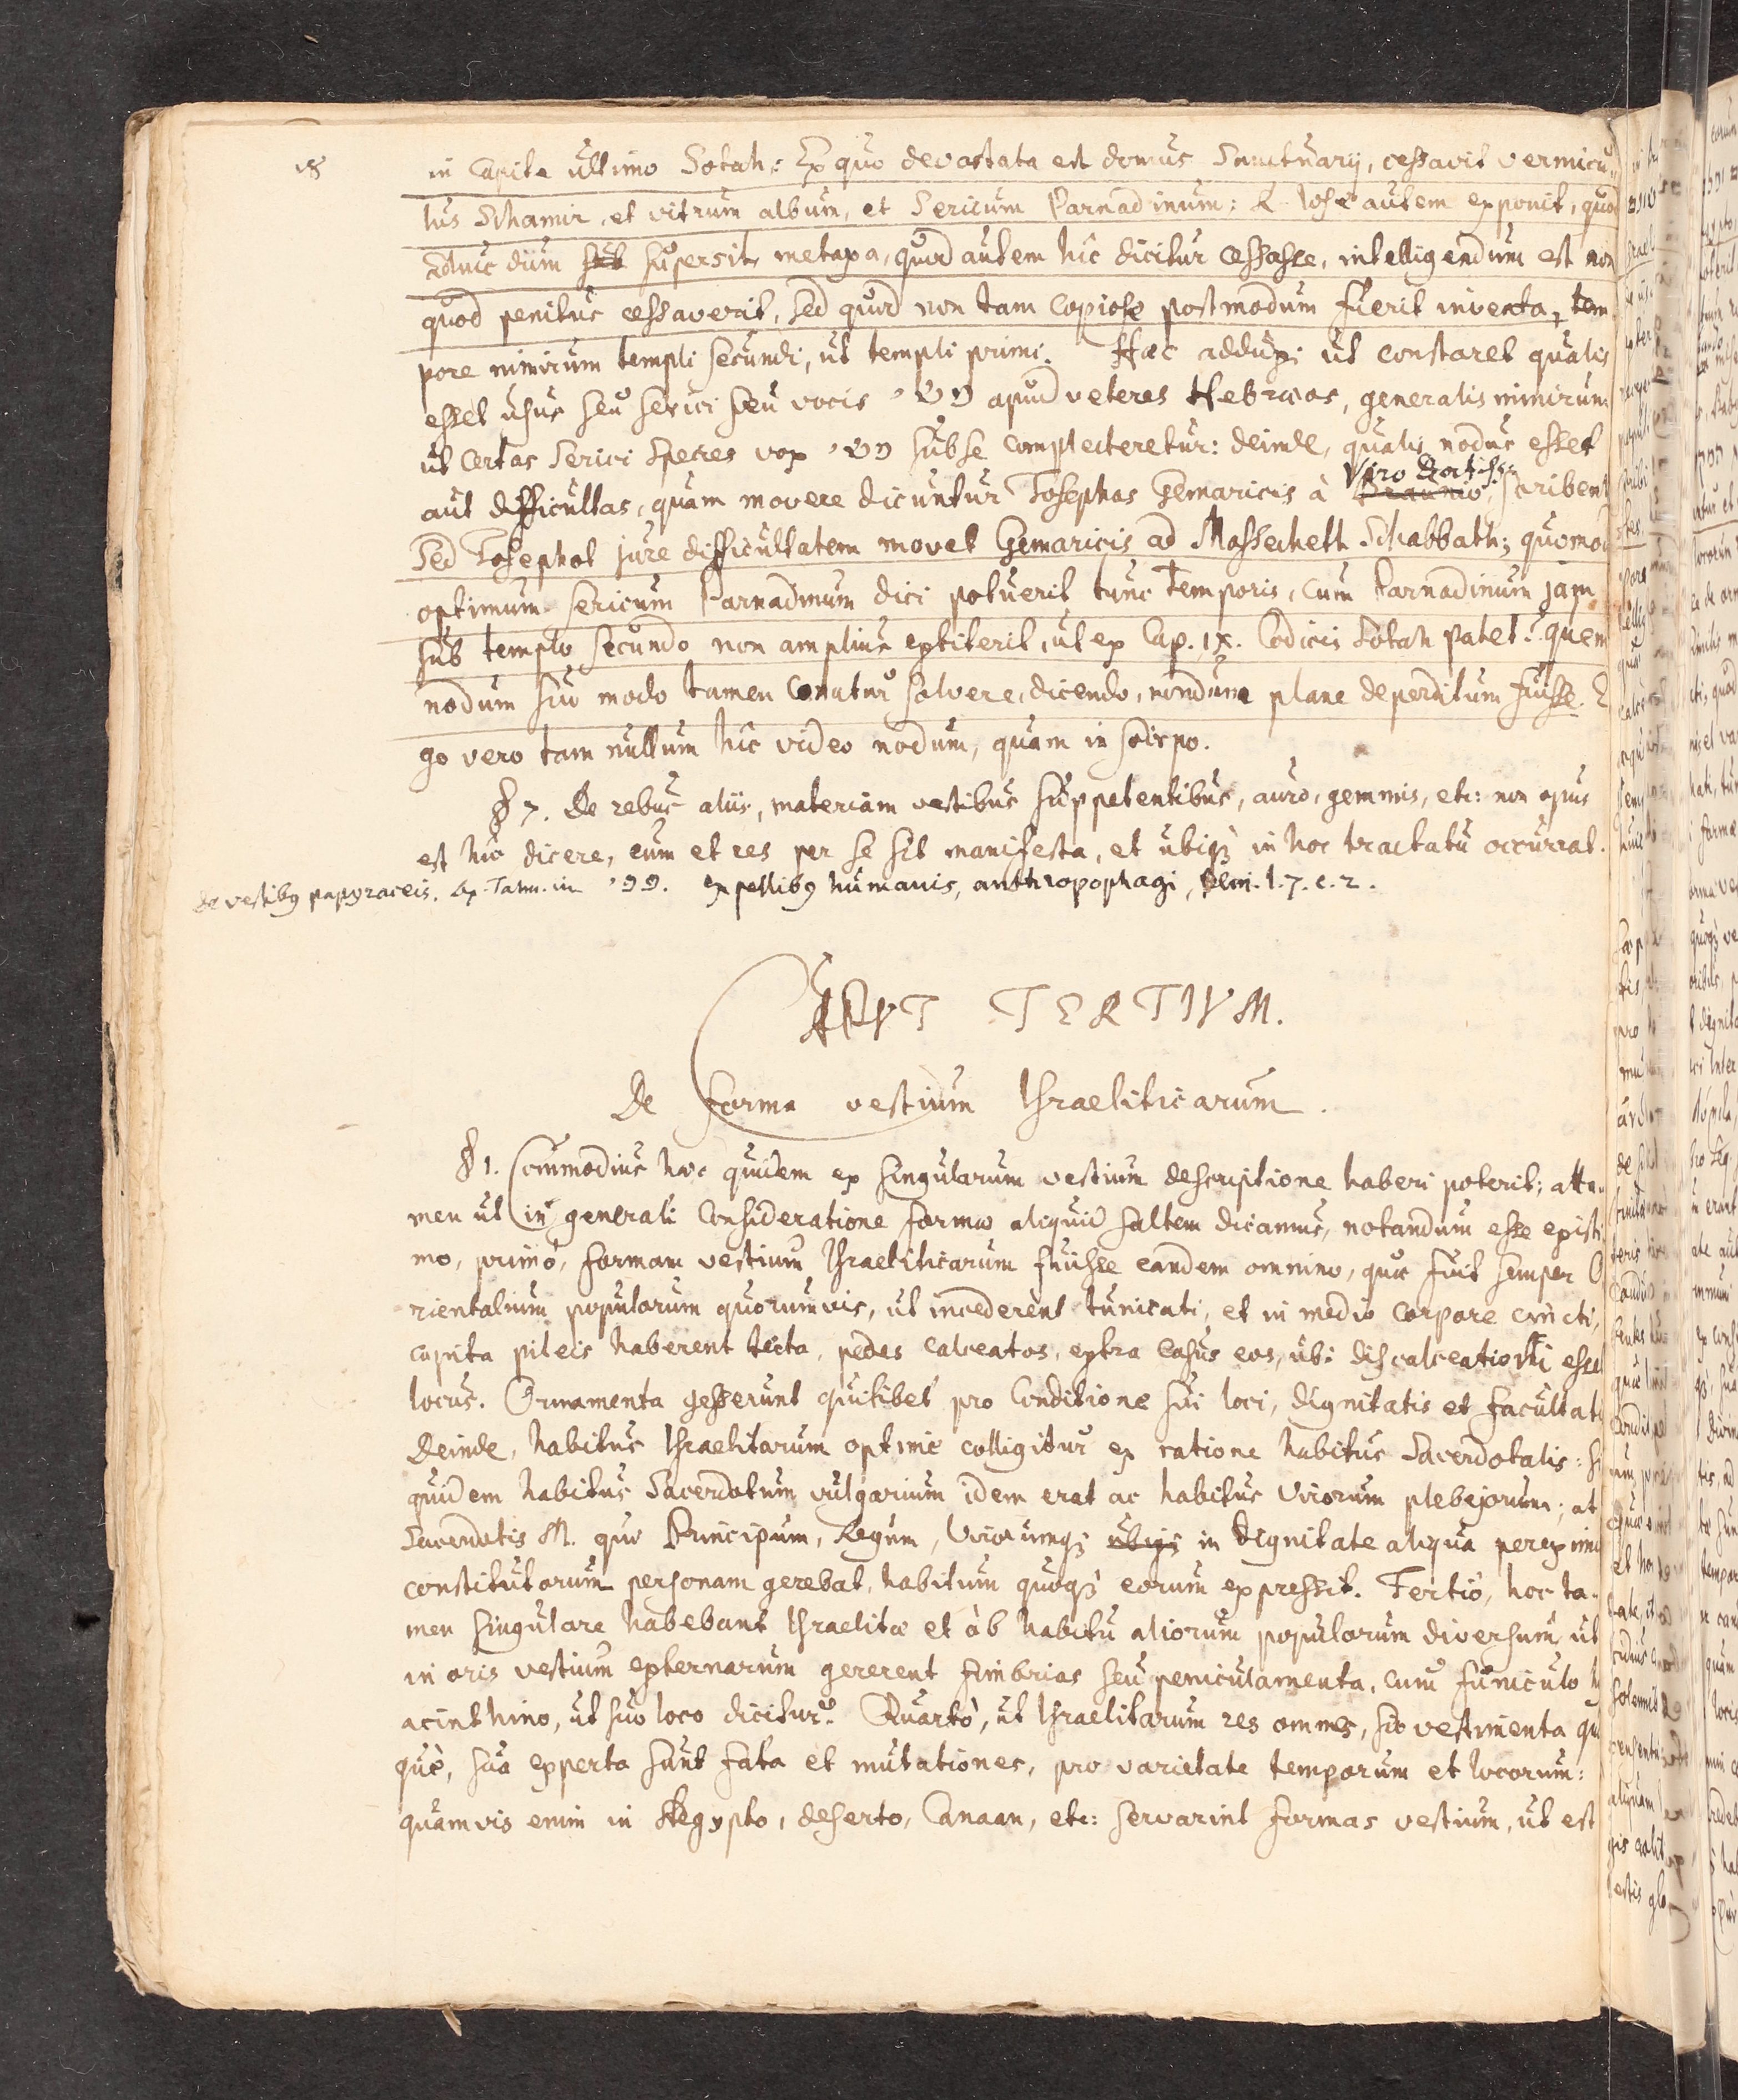 18
in Capite ultimo Sotah: Ex quo devastata est domus Sanctuarij, cessavit vermicu-
lus Schamir, et vitrum album, et Sericum Parnadinum: R. Jose autem exponit, quod
adhuc dum sub supersit metaxa, quod autem hîc dicitur cessasse, intelligendum est non
quod penitus cessaverit, sed quod non tam copiose postmodum fuerit inventa, tem-
pore nimirum templi secundi, ut templi primi. Hæc adduxi ut constaret qualis
esset usus seu serici seu vocis משי apud veteres Hebræos, generalis nimirum
ut certas serici species vox משי sub se complecteretur: deinde, qualis nodus esset
aut difficultas, quam movere dicuntur Tosephas Gemaricis à Viro Doctiss.
Braunio, scribent
Sed Tosephot jure difficultatem movet Gemaricis ad Massecheth Schabbath; quomo
optimum sericum Parnadinum dici potuerit tunc temporis, cum Parnadinum jam
sub templo secundo non amplius extiterit, ut ex Cap. IX. Codicis Sotah patet. quem
nodum suo modo tamen conatur solvere, dicendo, nondum plane deperditum fuisse. E
go vero tam nullum hîc video nodum, quam in scirpo.
§ 7. De rebus aliis, materiam vestibus suppetentibus, auro, gemmis, etc: non opus
est hîc dicere, cum et res per se sit manifesta, et ubiq; in hoc tractatu occurrat.
de vestibg papyraceis. Lex. Talm. in ניר. ex pellibg humanis, anthropophagi, Plin. l. 7. c. 2.
CAPVT TERTIVM.
De forma vestium Israeliticarum.
§ 1. Commodius hæc quidem ex singularum vestium descriptione haberi poterit; atta-
men ut in generali consideratione formæ aliquid saltem dicamus, notandum esse existi
mo, primò, formam vestium Israeliticarum fuisse eandem omnino, quæ fuit semper O
rientalium populorum quorumvis, ut incederent tunicati, et in medio corpore cincti,
capita pileis haberent tecta, pedes calceatos, extra casus eos, ubi discalceationi esset
locus. Ornamenta gesserunt quilibet pro conditione sui loci, dignitatis et facultat
Deinde, habitus Israelitarum optimè colligitur ex ratione habitus Sacerdotalis: si
quidem habitus Sacerdotum vulgarium idem erat ac habitus virorum plebejorum; at
Sacerdotis M. qui Principum, Regum, Virorumq; ubiq; in dignitate aliqua pereximi
constitutorum personam gerebat, habitum quoq; eorum expressit. Tertiò, hoc ta-
men singulare habebant Israelitæ et ab habitu aliorum populorum diversum, ut
in oris vestium externarum gererent fimbrias seu peniculamenta, cum funiculo hy
acinthino, ut suo loco dicitur. Quartò, ut Israelitarum res omnes, sic vestimenta qu
què, sua experta sunt fata et mutationes, pro varietate temporum et locorum:
quamvis enim in Aegypto, deserto, Canaan, etc: servarint formas vestium, ut est